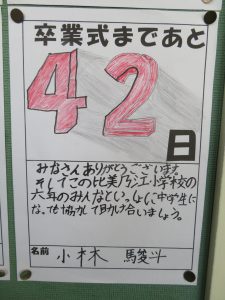 卒業式まであと
42
日
みなさんありがとうございます。
そしてこの比美乃江小学校の
六年のみんなといっしょに中学生に
な、ても協力して助け合いましょう。
名前 小林 駿斗